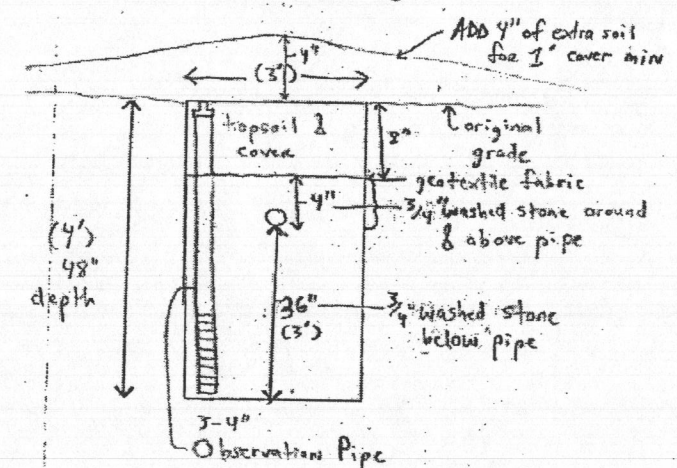 ADD 4" of extra soil
for 1' cover min
4"
(3')
topsoil
cover
8"
original
grade
geotextile fabric
4"
3/4" washed stone around
& above pipe
(4')
48"
depth
36"
(3')
3/4" washed stone
below pipe
3-4"
Observation Pipe